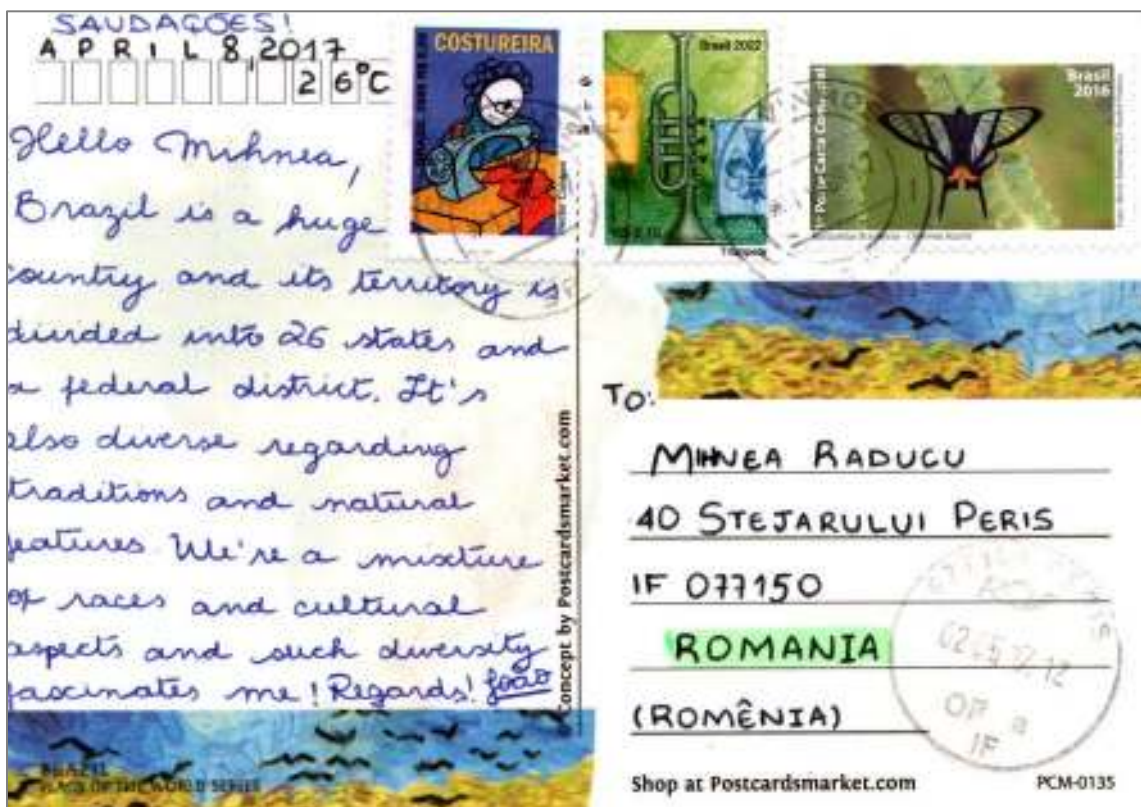 SAUDAÇÕES!
APRIL 8, 2017
26°C
Hello Mihnea,
Brazil is a huge
country and its territory is
divided into 26 states and
a federal district. It's
also diverse regarding
traditions and natural
features. We're a mixture
of races and cultural
aspects and such diversity
fascinates me! Regards! João
BRAZIL
FLAGS OF THE WORLD SERIES
Concept by Postcardsmarket.com
COSTUREIRA
Brasil 2002
Brasil
2016
TO:
MIHNEA RADUCU
40 STEJARULUI PERIS
IF 077150
ROMANIA
(ROMÊNIA)
IF
Shop at Postcardsmarket.com
PCM-0135